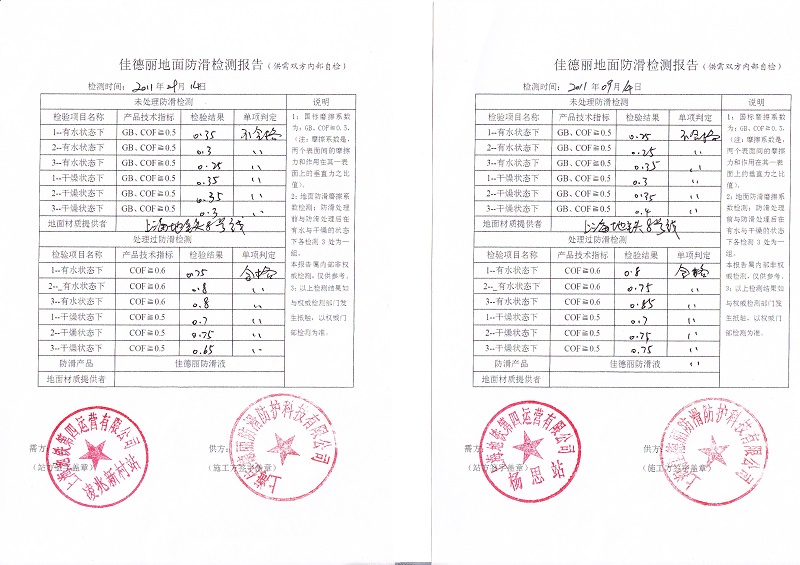 佳德丽地面防滑检测报告(供需双方内部自检)
检测时间: 2011年 月14日
未处理防滑检测 说明
检验项目名称 产品技术指标 检验结果 单项判定
1--有水状态下 GB、COF≧0.5 0.35 不合格
2--有水状态下 GB、COF≧0.5 0.3 〃
3--有水状态下 GB、COF≧0.5 0.25 〃
1--干燥状态下 GB、COF≧0.5 0.35 〃
2--干燥状态下 GB、COF≧0.5 0.35 〃
3--干燥状态下 GB、COF≧0.5 0.3 〃
地面材质提供者 上海地铁8号线
处理过防滑检测
检验项目名称 产品技术指标 检验结果 单项判定
1--有水状态下 COF≧0.6 0.75 合格
2--有水状态下 COF≧0.6 0.8 〃
3--有水状态下 COF≧0.6 0.8 〃
1--干燥状态下 COF≧0.5 0.7 〃
2--干燥状态下 COF≧0.5 0.75 〃
3--干燥状态下 COF≧0.5 0.65 〃
防滑产品 佳德丽防滑液
地面材质提供者
1:国标摩擦系数
为:GB、COF≧0.5,
(注:摩擦系数是,
两个表面间的摩擦
力和作用在其一表
面上的垂直力之比
值)。
2:地面防滑摩擦系
数检测:防滑处理
前与防滑处理后在
有水与干燥的状态
下各检测3处为一
组。
本报告属内部非权
威检测,仅供参考。
3:以上检测结果如
与权威检测部门发
生抵触,以权威门
部检测为准。
需方:
供方:
(施工方签字盖章)
上海地铁第四运营有限公司
凌兆新村站
佳德丽地面防滑检测报告(供需双方内部自检)
检测时间: 2011年09月14日
未处理防滑检测 说明
检验项目名称 产品技术指标 检验结果 单项判定
1--有水状态下 GB、COF≧0.5 0.25 不合格
2--有水状态下 GB、COF≧0.5 0.25 〃
3--有水状态下 GB、COF≧0.5 0.35 〃
1--干燥状态下 GB、COF≧0.5 0.3 〃
2--干燥状态下 GB、COF≧0.5 0.35 〃
3--干燥状态下 GB、COF≧0.5 0.4 〃
地面材质提供者 上海地铁8号线
处理过防滑检测
检验项目名称 产品技术指标 检验结果 单项判定
1--有水状态下 COF≧0.6 0.8 合格
2--有水状态下 COF≧0.6 0.75 〃
3--有水状态下 COF≧0.6 0.85 〃
1--干燥状态下 COF≧0.5 0.7 〃
2--干燥状态下 COF≧0.5 0.75 〃
3--干燥状态下 COF≧0.5 0.75 〃
防滑产品 佳德丽防滑液 〃
地面材质提供者
1:国标摩擦系数
为:GB、COF≧0.5,
(注:摩擦系数是,
两个表面间的摩擦
力和作用在其一表
面上的垂直力之比
值)。
2:地面防滑摩擦系
数检测:防滑处理
前与防滑处理后在
有水与干燥的状态
下各检测3处为一
组。
本报告属内部非权
威检测,仅供参考。
3:以上检测结果如
与权威检测部门发
生抵触,以权威门
部检测为准。
需方:
供方:
上海地铁第四运营有限公司
杨思站